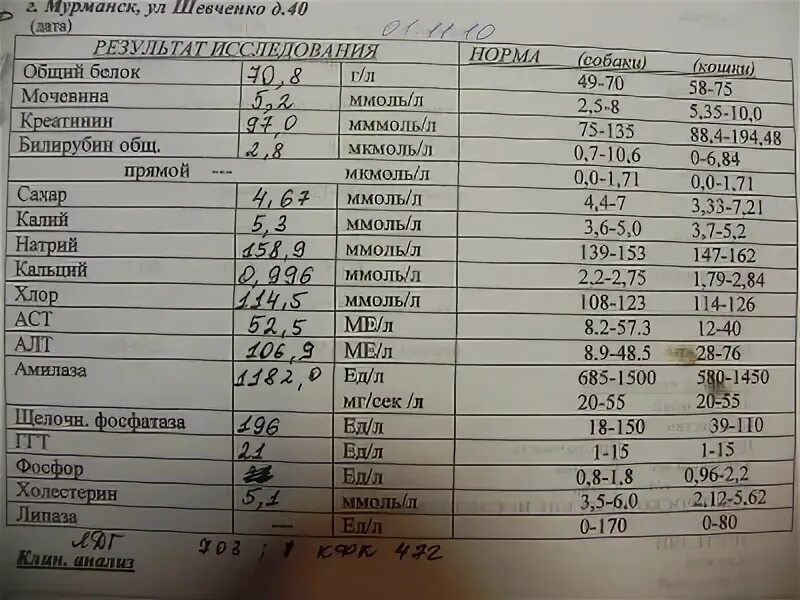 г. Мурманск, ул Шевченко д.40
(дата) 01.11.10
РЕЗУЛЬТАТ ИССЛЕДОВАНИЯ НОРМА (собаки) (кошки)
Общий белок 70,8 г/л 49-70 58-75
Мочевина 5,2 ммоль/л 2,5-8 5,35-10,0
Креатинин 97,0 мммоль/л 75-135 88.4-194,48
Билирубин общ. 2,8 мкмоль/л 0,7-10,6 0-6,84
прямой --- мкмоль/л 0,0-1,71 0,0-1.71
Сахар 4,67 ммоль/л 4,4-7 3,33-7,21
Калий 5,3 ммоль/л 3,6-5,0 3,7-5,2
Натрий 158,9 ммоль/л 139-153 147-162
Кальций 0,996 ммоль/л 2,2-2,75 1,79-2,84
Хлор 114,5 ммоль/л 108-123 114-126
АСТ 52,5 МЕ/л 8.2-57.3 12-40
АЛТ 106,9 МЕ/л 8.9-48.5 28-76
Амилаза 1182,0 Ед/л 685-1500 580-1450
мг/сек /л 20-55 20-55
Щелочн. фосфатаза 196 Ед/л 18-150 39-110
ГГТ 21 Ед/л 1-15 1-15
Фосфор Ед/л 0,8-1.8 0,96-2,2
Холестерин 5,1 ммоль/л 3,5-6.0 2,12-5.62
Липаза --- Ед/л 0-170 0-80
ЛДГ 703 ; КФК 472
Клин. анализ